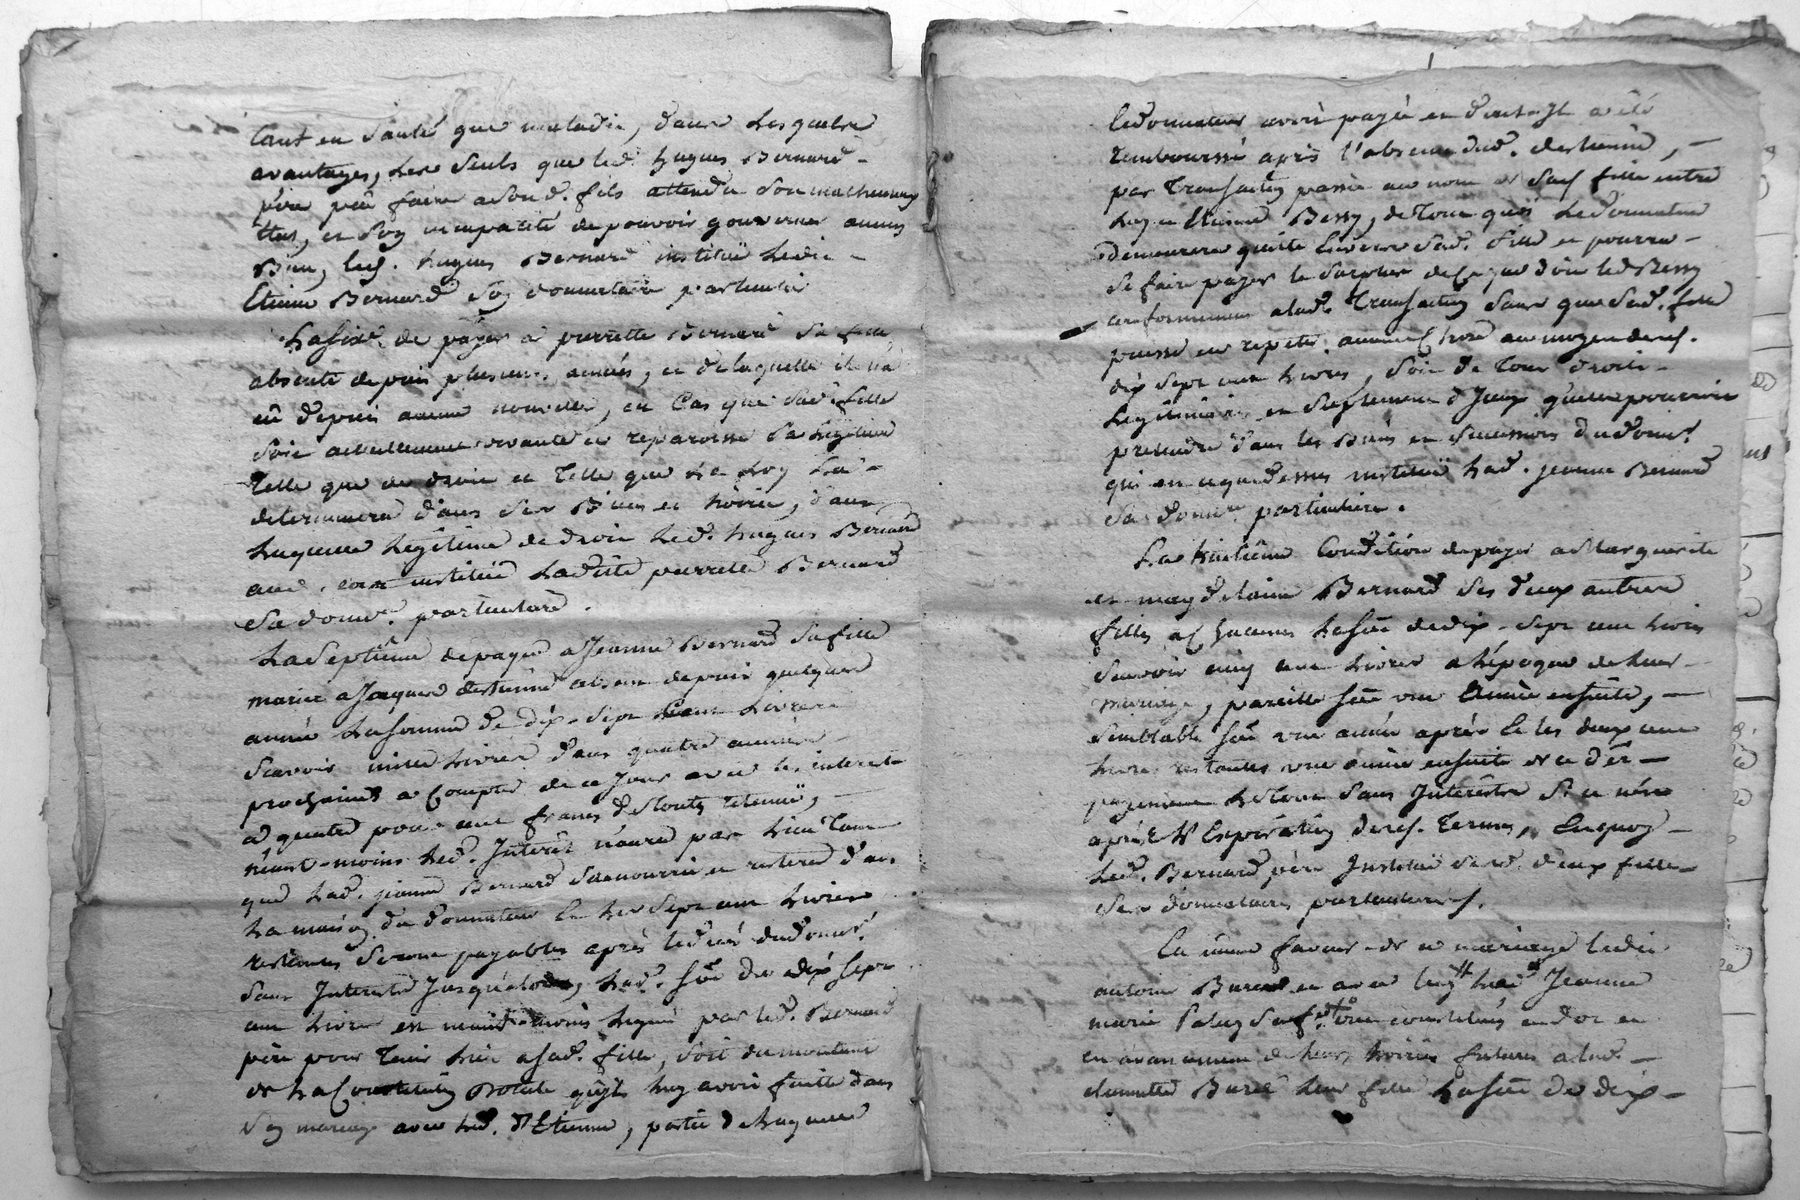 tant en santé que maladie, dans lesquels
avantages, les seuls que led. hugues Bernard
père peu faire a sond. fils attendu son malheureux
état, et soy incapacité de pouvoir gouverner aucun
Bien, led. hugues Bernard institüe ledit
Etienne Bernard soy donnataire particulier
La sixe. de payer a pierrette Bernard sa fille
absente depuis plusieurs années, et de laquelle il n'a
eû depuis aucune nouvelle, en cas que sad. fille
soit actuellement vivante et reparoisse sa legitime
telle que de droit et telle que la loy l'a
determinera dans ses Biens et hoirie, dans
laquelle legitime de droit led. hugues Bernard
institüe ladite pierrette Bernard
sa donnre. particulière.
La septième de payer a Jeanne Bernard sa fille
mariée a Jacques destienne absent depuis quelques
année la somme de dix-sept cent livres
scavoir mille livres dans quatre années
prochaines a compter de ce jour avec les interets
a quatre pour cent francs de toutes retenuë,
néant-moins led. Interêt n'aura pas lieu tant
que lad. jeanne Bernard sera nourrie et restera dans
la maisoy du donnateur et les sept cent livres
restantes seront payables après le decès dud. donnr.
sans Interets jusqu'alors, lad. some de dix sept
cent livres est néant-moins leguée par led. Bernard
père pour tenir lieu a sad. fille, soit du montant
de la Constitutioy dotale qu'il luy avoit faitte dans
soy mariage avec led. d'Etienne, partie de laquelle
le donnateur avoit payée et dont il a été
remboursé après l'absence dud. destienne,
par transactioy passée au nom de sad. fille entre
luy et Etienne Bessy, de tout quoi le donnateur
demeurera quitte envers sad. fille et pourra
se faire payer le surplus de ce que doit led Bessy
conformement a lad. transactioy sans que sad. fille
puisse en repeter aucune chose au moyen desd.
dix sept cent livres, soit de tous droits
legitimaires et suplement d'iceux qu'elle pourroit
pretendre dans les Biens et successions du donnr.
qui en ce que dessus institüe lad. jeanne Bernard
sa donnre. particulière.
La huitième Condition de payer a Marguerite
et magdelaine Bernard ses deux autres
filles a chacunes la some de dix-sept cent livres
scavoir cinq cent livres a l'époque de leur
mariage, pareille some une année ensuite,
semblable some une année après et les deux cent
livres restantes une année ensuite de ce der
payement le tout sans Interêts si ce n'est
après l'Expiratioy desd. termes, en quoy
led. Bernard père Institüe sesd. deux filles
ses donnataires particulieres.
En même faveur de ce mariage ledit
antoine Burel et avec luy lad. Jeanne
marie constitüés en dot et
en avancement de leurs hoiries futures a lad.
claudine Burel leur fille la some de dix